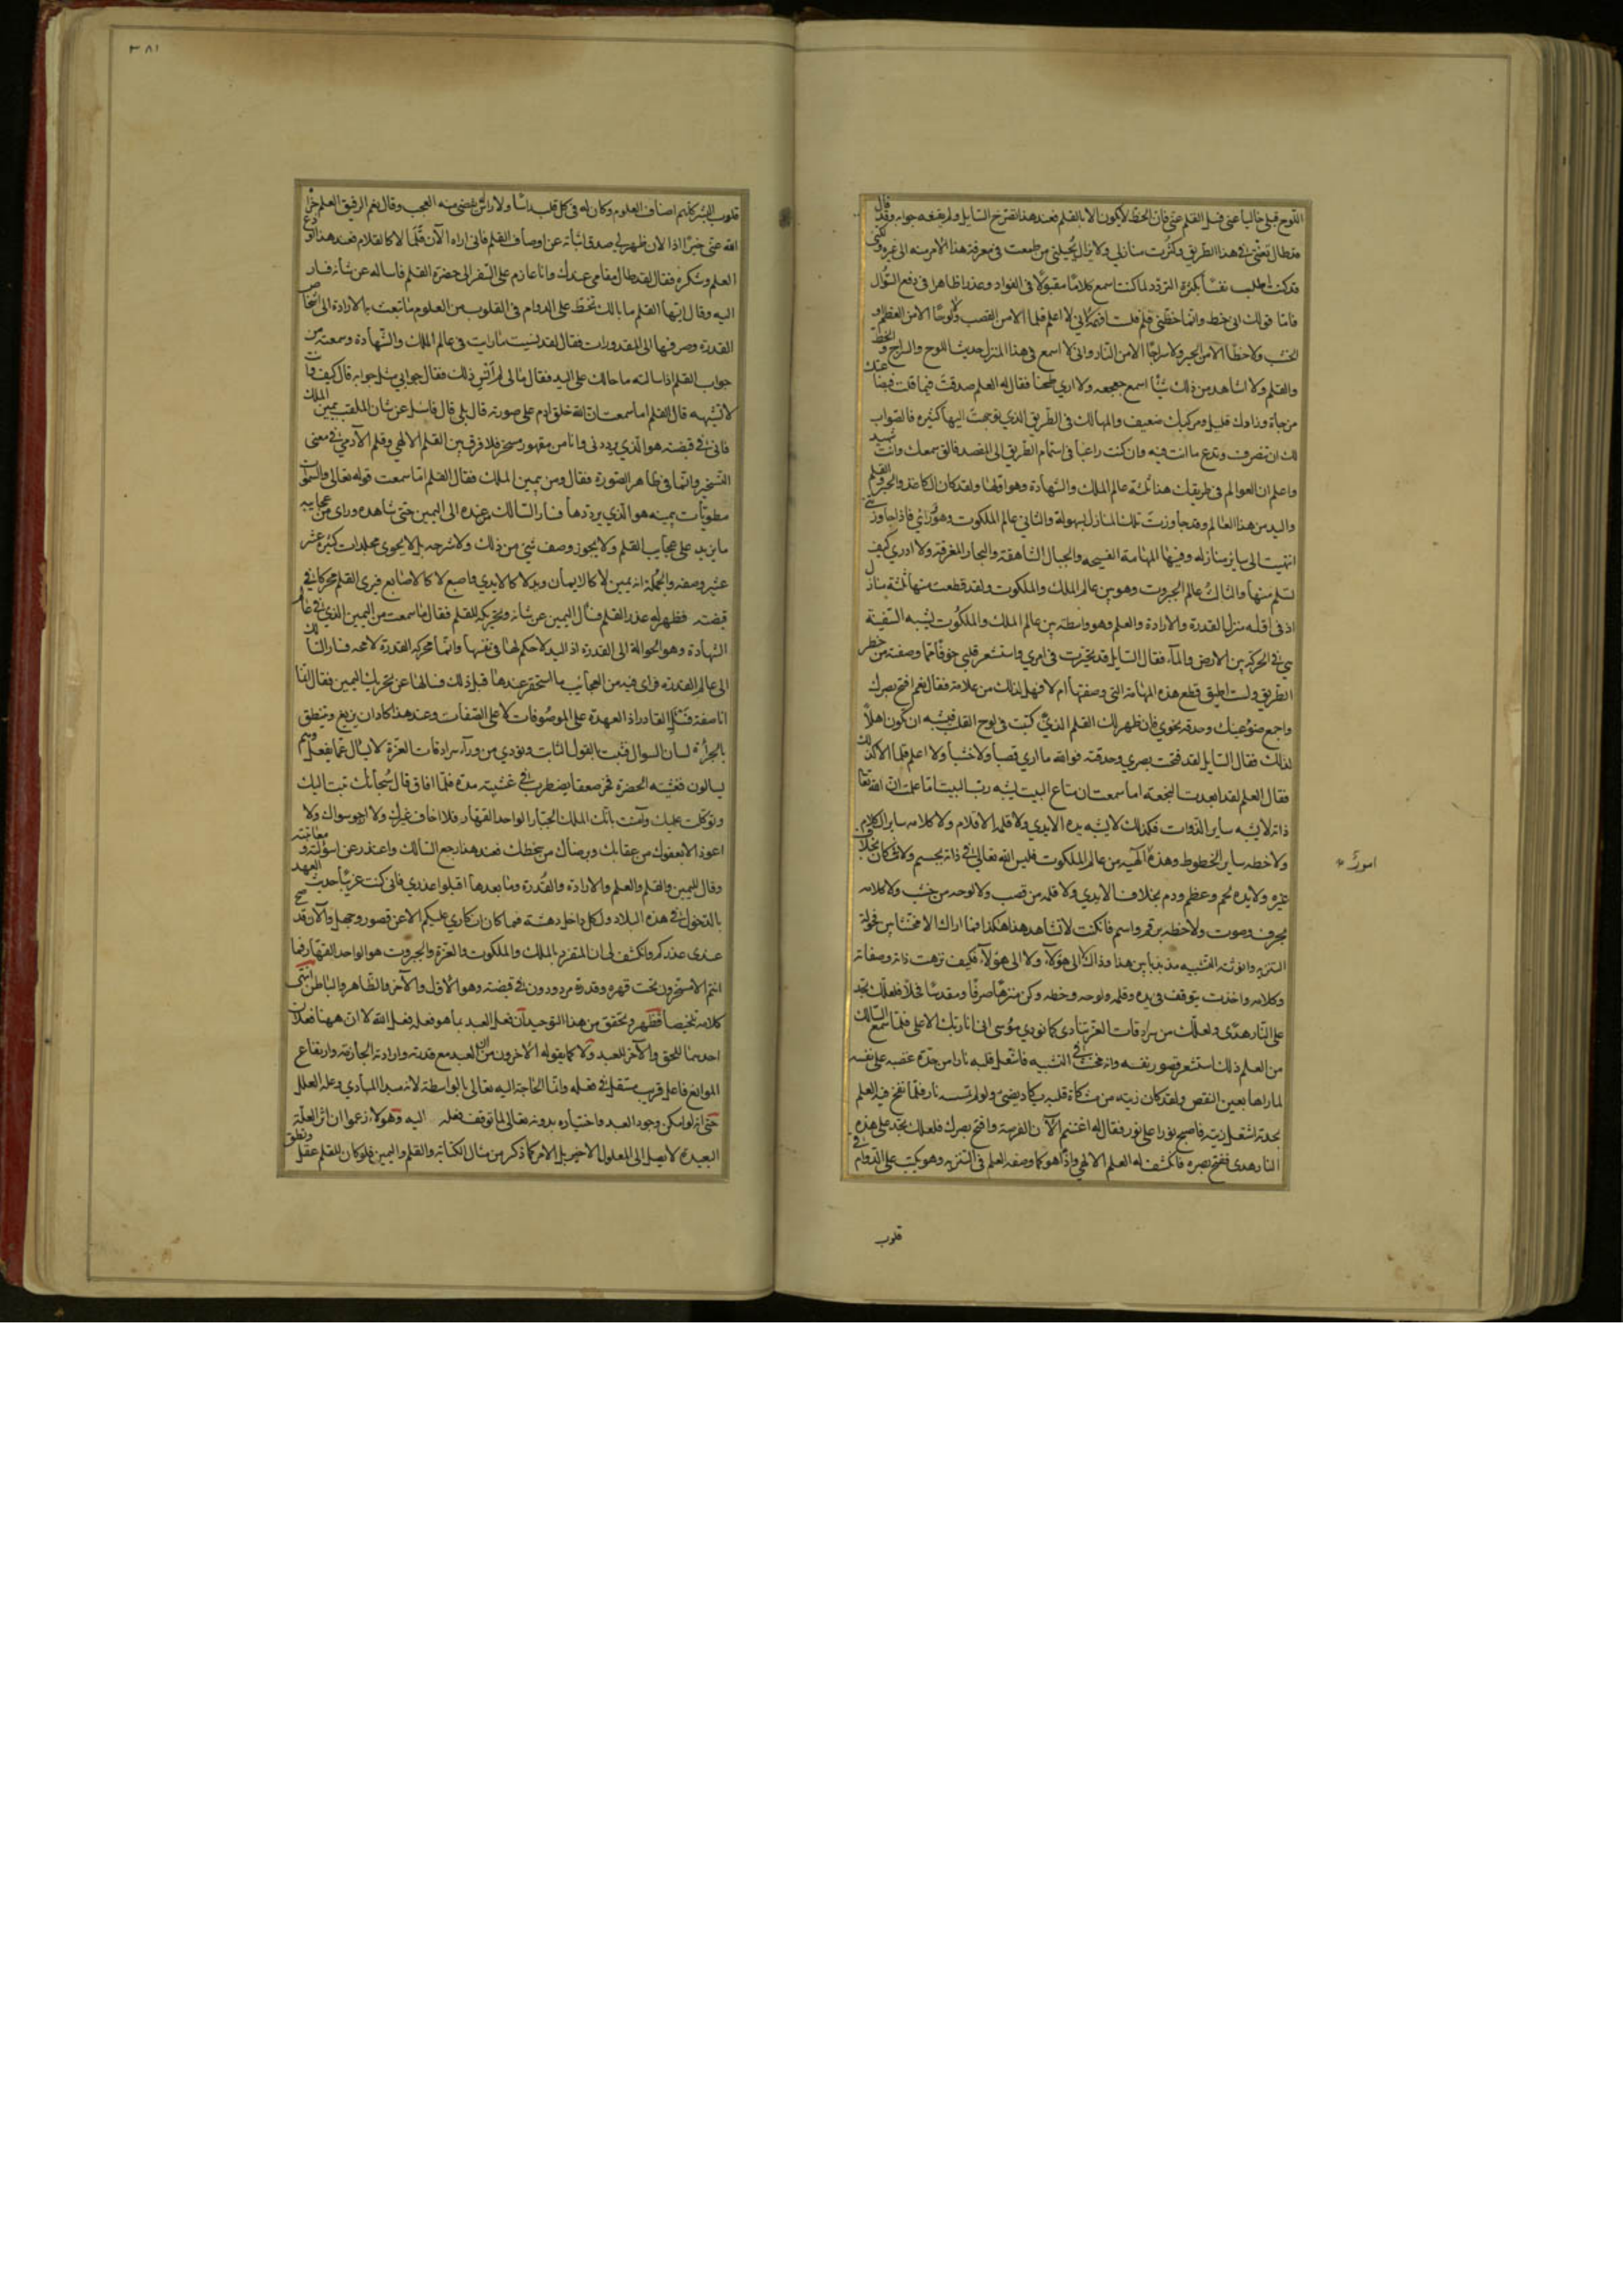 اللوح قلبي خاليا عني فسل القلم عني فان الخط لا يكون الا بالقلم فعند هذا تضرع السايل ولم يقنعه جوابه وقال
قد طال تعبي في هذا الطريق وكثرت منازلي ولا يزال يحيلني من طمعت في معرفة هذا الامر منه الى غيره ولكني
قد كنت اطلب نفسا بكثرة التردد لما كنت اسمع كلاما مقبولا في الفواد وعذرا ظاهرا في دفع السؤال
فاما قولك اني خط وانما خطني قلم فلست افهمه اني لا اعلم قلما الا من القصب ولا لوحا الا من العظم او
الخشب ولا خطا الا من الحبر ولا سراجا الا من النار واني لا اسمع في هذا المنزل حديث اللوح والسراج والخط
والقلم ولا اشاهد من ذلك شيئا اسمع جعجعه ولا ارى طحنا فقال له العلم صدقت فيما قلت فبضاعتك
مزجاة وزادك قليل ومركبك ضعيف والمهالك في الطريق الذي توجهت اليها كثيرة فالصواب
لك ان تنصرف وتدع ما انت فيه وان كنت راغبا في استتمام الطريق الى المقصد فالق سمعك وانت شهيد
واعلم ان العوالم في طريقك هذا ثلثة عالم الملك والشهادة وهو اولها ولقد كان الكاغذ والحبر والقلم
واليد من هذا العالم وقد جاوزت تلك المنازل بسهولة والثاني عالم الملكوت وهو ورائي فاذا جاوزتني
انتهيت الى ساير منازله وفيها المهامة الفسيحه والجبال الشاهقة والبحار المغرقة ولا ادري كيف
تسلم منها والثالث عالم الجبروت وهو بين عالم الملك والملكوت ولقد قطعت منها ثلثة منازل
اذ في اوله منزل القدرة والارادة والعلم وهو واسطة بين عالم الملك والملكوت يشبه السفينة
هي في الحركة بين الارض والماء فقال السايل قد تحيرت في امري واستشعر قلبي خوفا مما وصفته من خطر
الطريق ولست اطيق قطع هذه المهامة التي وصفتها ام لا فهل لذلك من علامة فقال نعم افتح بصرك
واجمع ضوء عينك وحدقه نحوي فان ظهر لك القلم الذي كتبت في لوح القلب فيشبه ان تكون اهلا
لذلك فقال السايل لقد فتحت بصري وحدقته فوالله ما ارى قصبا ولا خشبا ولا اعلم قلما الا كذلك
فقال العلم لقد ابعدت النجعة اما سمعت ان متاع البيت يشبه رب البيت اما علمت ان الله تعا
ذاته لا يشبه ساير الذوات فكذلك لا يشبه يده الايدي ولا قلمه الاقلام ولا كلامه ساير الكلام
ولا خطه ساير الخطوط وهذه الهية من عالم الملكوت فليس الله تعالى في ذاته بجسم ولا في مكان بخلاف
غيره ولا يده لحم وعظم ودم بخلاف الايدي ولا قلمه من قصب ولا لوحه من خشب ولا كلامه
بحرف وصوت ولا خطه برقم ورسم فان كنت لا تشاهد هذا هكذا فما اراك الا مخنثا بين فحولة
التنزيه وانوثة التشبيه مذبذبا بين هذا وذاك لا الى هؤلاء ولا الى هؤلاء فكيف نزهت ذاته وصفاته
وكلامه واخذت تتوقف في يده وقلمه ولوحه وخطه وكن منزها صرفا ومقدسا فحلا فلعلك تجد
على النار هدى ولعلك من سرادقات العز تنادى كما نودي موسى اني انا ربك الاعلى فلما سمع السالك
من العلم ذلك استشعر قصور نفسه وانه مخنث في التشبيه فاشتعل قلبه نارا من حدة غضبه على نفسه
لما راها بعين النقص ولقد كان زيته من مشكاة قلبه يكاد يضيئ ولو لم تمسسه نار فلما نفخ فيه العلم
بحدته اشتعل زيته فاصبح نورا على نور فقال له اغتنم الآن الفرصة وافتح بصرك فلعلك تجد على هذه
النار هدى ففتح بصره فانكشف له العلم الالهي واذا هو كما وصفه العلم في التنزيه وهو يكتب على الدوام في
قلوب
امورك
٣٨١
قلوب البشر كلهم اصناف العلوم وكان له في كل قلب راسا ولا راس له فقضى منه العجب وقال نعم الرفيق العلم جزاه
الله عني خيرا اذ الان ظهر لي صدق انبائه عن اوصاف القلم فاني اراه الآن قلما لا كالاقلام فعند هذا ودع
العلم وشكره فقال لقد طال مقامي عندك وانا عازم على السفر الى حضرة القلم فاساله عن شانه فسار
اليه وقال ايها القلم ما بالك تخط على الدوام في القلوب من العلوم ما تبعث به الارادة الى اشخاص
القدرة وصرفها الى المقدورات فقال لقد نسيت ما رايت في عالم الملك والشهادة وسمعته من
جواب القلم اذ سالته ما حالك على اليد فقال ما لي لم انس ذلك فقال جوابي مثل جوابه قال كيف وانت
لا تشبهه قال القلم اما سمعت ان الله خلق ادم على صورته قال بلى قال فاسئل عن شان الملقب بيمين الملك
فاني في قبضته هو الذي يرددني وانا من مقهور مسخر فلا فرق بين القلم الالهي وقلم الآدمي في معنى
التسخير وانما في ظاهر الصورة فقال ومن يمين الملك فقال القلم اما سمعت قوله تعالى والسموات
مطويات بيمينه هو الذي يرددها فسار السالك من عنده الى اليمين حتى شاهده وراى من عجايبه
ما يزيد على عجايب القلم ولا يجوز وصف شيئ من ذلك ولا شرحه بل لا يحوي مجلدات كثيرة عشر
عشير وصفه والجملة انه يمين لا كالايمان ويد لا كالايدي واصبع لا كالاصابع فيرى القلم محركا في
قبضته فظهر له عذر القلم فسال اليمين عن شانه وتحريكه للقلم فقال ما سمعت من اليمين الذي في عالم
الشهادة وهو الحوالة الى القدرة اذ اليد لا حكم لها في نفسها وانما محركه القدرة لا محه فسار السالك
الى عالم القدرة فراى فيه من العجائب ما استحقر عندها قبل ذلك فسالها عن تحريك اليمين فقال انما
انا صفة فسل القادر اذ العهدة على الموصوفات لا على الصفات وعند هذا كاد ان يزيغ وينطق
بالجرأة لسان السوال فثبت بالقول الثابت ونودي من وراء سرادقات العزة لا يسال عما يفعل وهم
يسالون فغشيته الحضرة فخر صعقا يضطرب في غشيته مدة فلما افاق قال سبحانك تبت اليك
وتوكلت عليك وآمنت بانك الملك الجبار الواحد القهار فلا اخاف غيرك ولا ارجو سواك ولا
اعوذ الا بعفوك من عقابك وبرضاك من سخطك فعند هذا رجع السالك واعتذر عن اسئولته ومعاتبته
وقال لليمين والقلم والعلم والارادة والقدرة وما بعدها اقبلوا عذري فاني كنت غريبا حديث العهد
بالدخول في هذه البلاد ولكل داخل دهشة فما كان انكاري عليكم الا عن قصور وجهل والآن قد صح
عندي عذركم وانكشف لي ان المتفرد بالملك والملكوت والعزة والجبروت هو الواحد القهار فما
انتم الا مسخرون تحت قهره وقدرة مرددون في قبضته وهو الاول والآخر والظاهر والباطن انتهى
كلامه تلخيصا فظهر وتحقق من هذا التوحيد ان فعل العبد بما هو فعل فعل الله لا ان ههنا فعلان
احدهما للحق والآخر للعبد ولا كما يقوله الاخرون من ان العبد مع قدرته وارادته الجازمة وارتفاع
الموانع فاعل قريب مستقل في فعله وانما الحاجة اليه تعالى بالواسطة لانه مبدا المبادي وعلة العلل
حتى انه لو امكن وجود العبد واختياره بدونه تعالى لما توقف فعله اليه وهولاء زعموا ان اثر العلة
البعيدة لا يصل الى المعلول الاخير بل الامر كما ذكر من مثال الكتابة والقلم واليمين فلو كان للقلم عقل ونطق